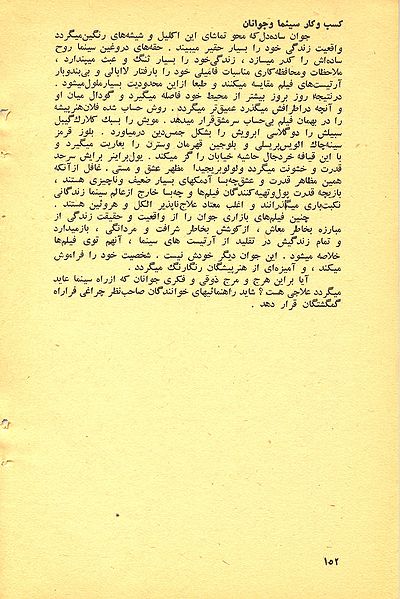 کسب وکار سینما وجوانان
جوان ساده‌دل‌که محو تماشای این اکلیل و شیشه‌های رنگین‌میگردد
واقعیت زندگی خود را بسیار حقیر میبیند . حقه‌های دروغین سینما روح
ساده‌اش را کدر میسازد ، زندگی‌خود را بسیار تنگ و عبث میپندارد ،
ملاحظات ومحافظه‌کاری مناسبات فامیلی خود را بارفتار لاابالی و بی‌بندوبار
آرتیست‌های فیلم مقایسه میکنند و طبعا ازاین محدودیت بسیارملول‌میشود .
درنتیجه روز بروز بیشتر از محیط خود فاصله میگیرد و گودال میان او
و آنچه دراطرافش میگذرد عمیق‌تر میگردد . روش حساب شده فلان‌هنرپیشه
را در بهمان فیلم بی‌حساب سرمشق‌قرار میدهد . مویش را بسبك کلارك‌گیبل
سبیلش را دوگلاسی ابرویش را بشکل جمس‌دین درمیاورد . بلوز قرمز
سینه‌چاك الویس‌پریسلی و بلوجین قهرمان وسترن را بعاریت میگیرد و
با این قیافه خردجال حاشیه خیابان را گز میکند . یول‌براینر برایش سرحد
قدرت و خشونت میگردد ولولوبریجیدا مظهر عشق و مستی . غافل ازآنکه
همین مظاهر قدرت و عشق‌چه‌بسا آدمکهای بسیار ضعیف وناچیزی هستند ،
بازیچه قدرت پول‌وتهیه‌کنندگان فیلم‌ها و چه‌بسا خارج ازعالم سینما زندگانی
نکبت‌باری میگذرانند و اغلب معتاد علاج‌ناپذیر الکل و هروئین هستند .
چنین فیلم‌های بازاری جوان را از واقعیت و حقیقت زندگی از
مبارزه بخاطر معاش ، ازکوشش بخاطر شرافت و مردانگی ، بازمیدارد
و تمام زندگیش در تقلید از آرتیست های سینما ، آنهم توی فیلم‌ها
خلاصه میشود . این جوان دیگر خودش نیست . شخصیت خود را فراموش
میکند ، و آمیزه‌ای از هنرپیشگان رنگارنگ میگردد .
آیا براین هرج و مرج ذوقی و فکری جوانان که ازراه سینما عاید
میگردد علاجی هست ؟ شاید راهنمائیهای خوانندگان صاحب‌نظر چراغی فراراه
گمگشتگان قرار دهد .
۱۵۲